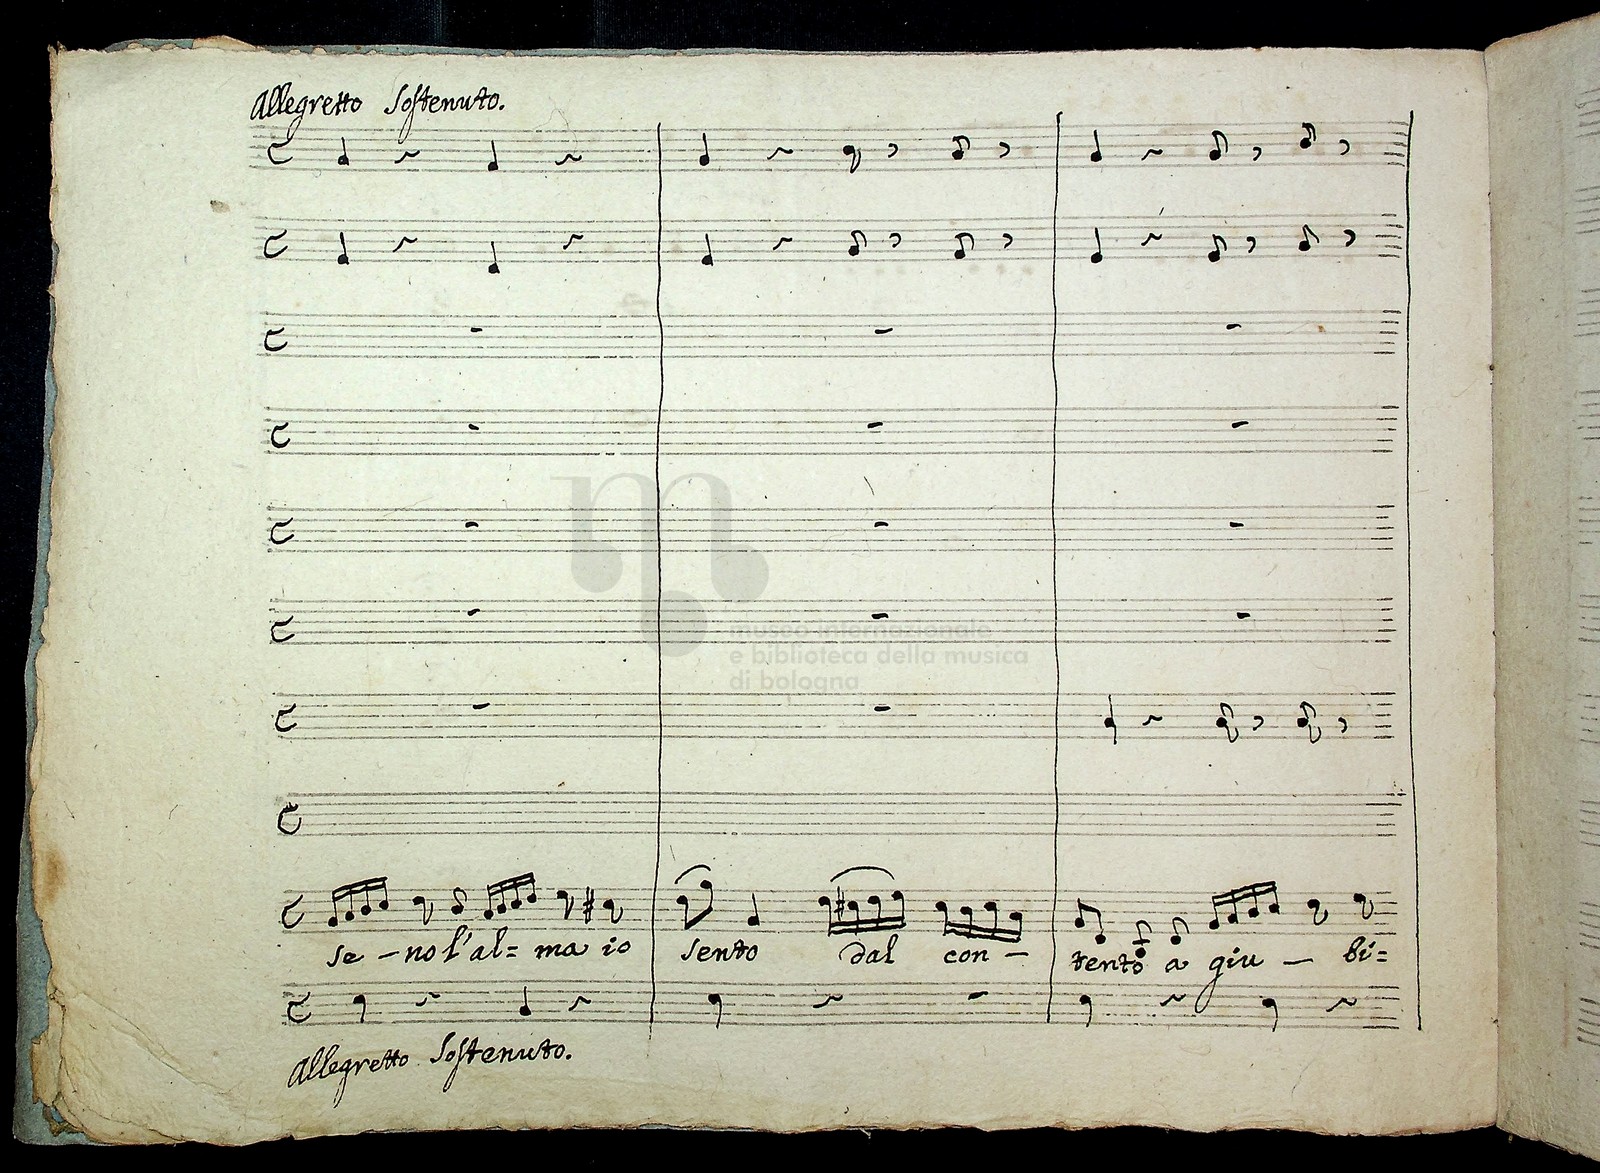 Allegretto Sostenuto.
museo internazionale
e biblioteca della musica
di bologna
se - no l'al= ma io sento dal con - tento a giu - bi=
Allegretto Sostenuto.